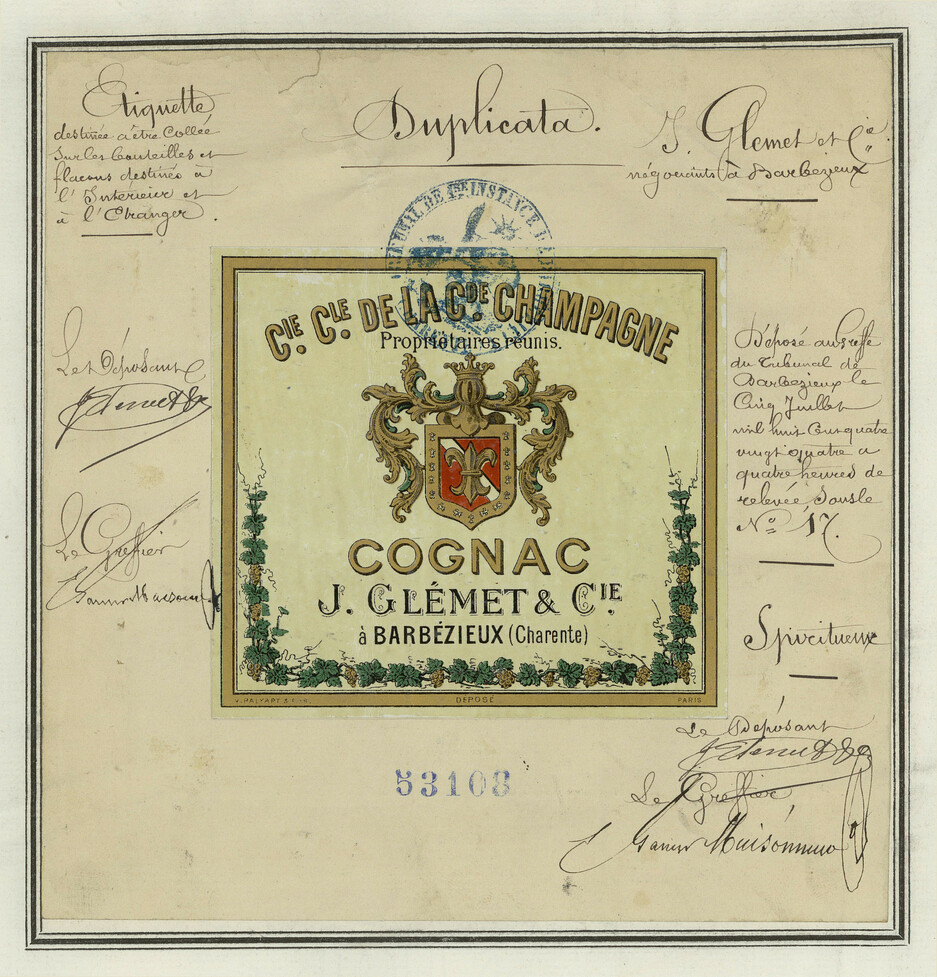 Duplicata.
Etiquette
destinée à être Collée
Sur les bouteilles et
flacons destinés à
l'Intérieur et
à l'Etranger.
J. Glemet et Cie
négociants à Barbezieux
TRIBUNAL DE 1ERE INSTANCE
CIE. CLE DE LA CDE. CHAMPAGNE
Propriétaires réunis.
COGNAC
J. GLÉMET & CIE
à BARBÉZIEUX (Charente)
DÉPOSÉ
PARIS
Le Déposant
Le Greffier
Déposé au greffe
du Tribunal de
Barbezieux le
Cinq Juillet
mil huit Cent quatre
vingt quatre à
quatre heures de
relevée, Sous le
No 17.
Spiritueux
Le Déposant
Le Greffier,
53108